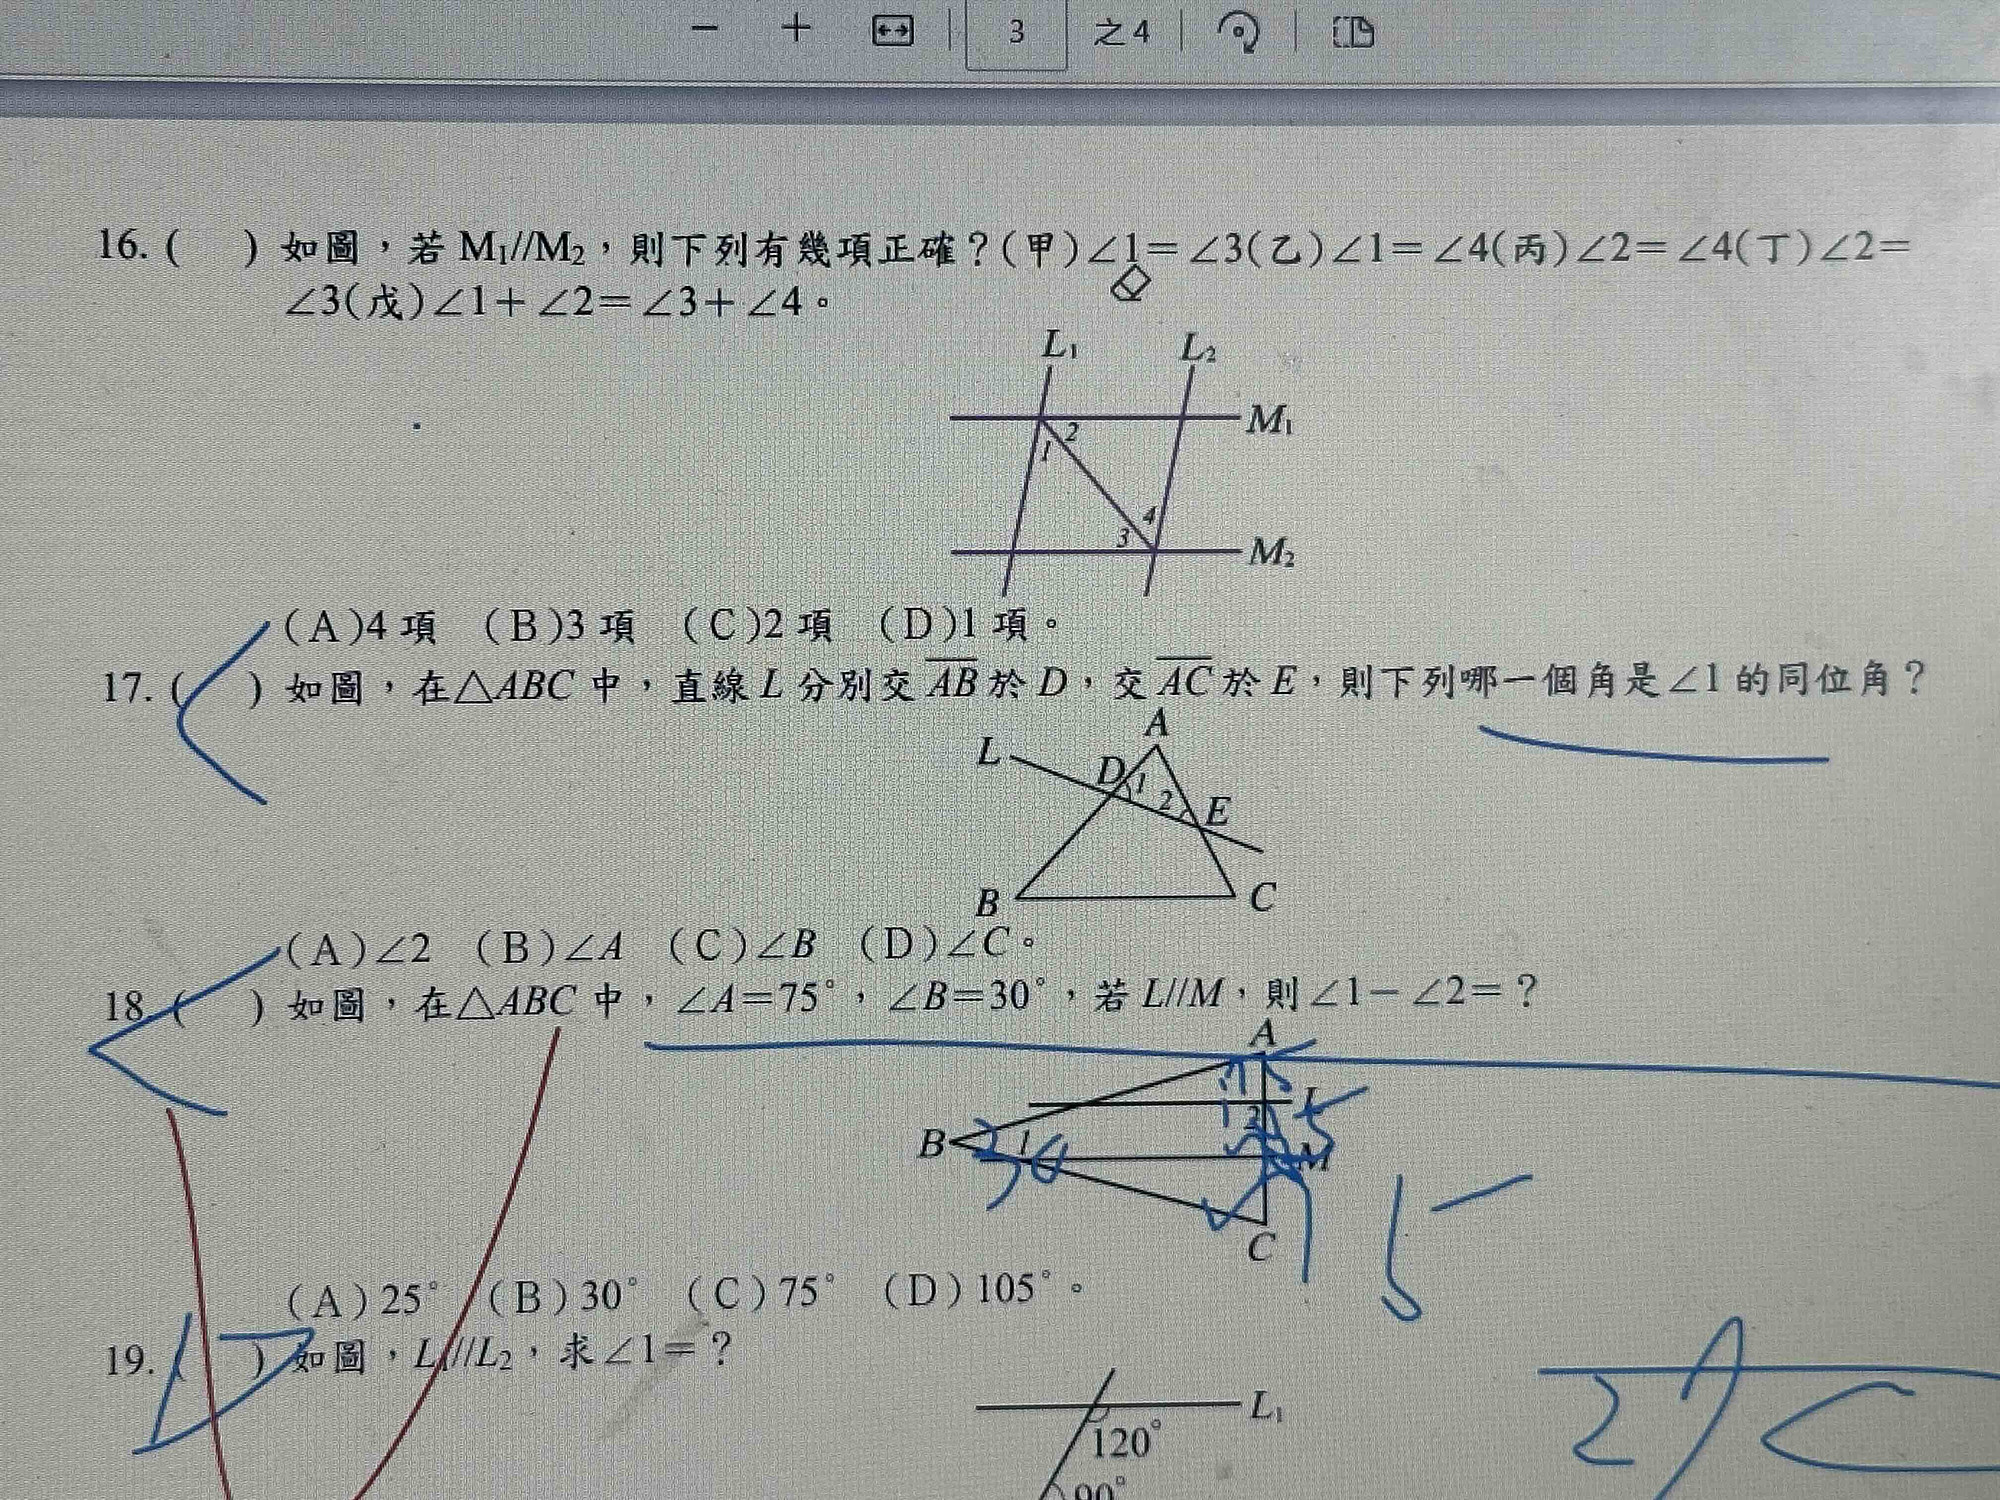 3 之4
16. ( ) 如圖，若 M₁//M₂，則下列有幾項正確？(甲)∠1=∠3(乙)∠1=∠4(丙)∠2=∠4(丁)∠2=
∠3(戊)∠1+∠2=∠3+∠4。
L₁ L₂
M₁
2
1
4
3
M₂
(A)4 項 (B)3 項 (C)2 項 (D)1 項。
17. ( ) 如圖，在△ABC 中，直線 L 分別交 AB 於 D，交 AC 於 E，則下列哪一個角是∠1 的同位角？
A
L
D 1
2 E
B C
(A)∠2 (B)∠A (C)∠B (D)∠C。
18. ( ) 如圖，在△ABC 中，∠A=75°，∠B=30°，若 L//M，則∠1-∠2=？
A
L
2
B 1
M
C
(A)25° (B)30° (C)75° (D)105°。
19. ( ) 如圖，L₁//L₂，求∠1=？
L₁
120°
90°